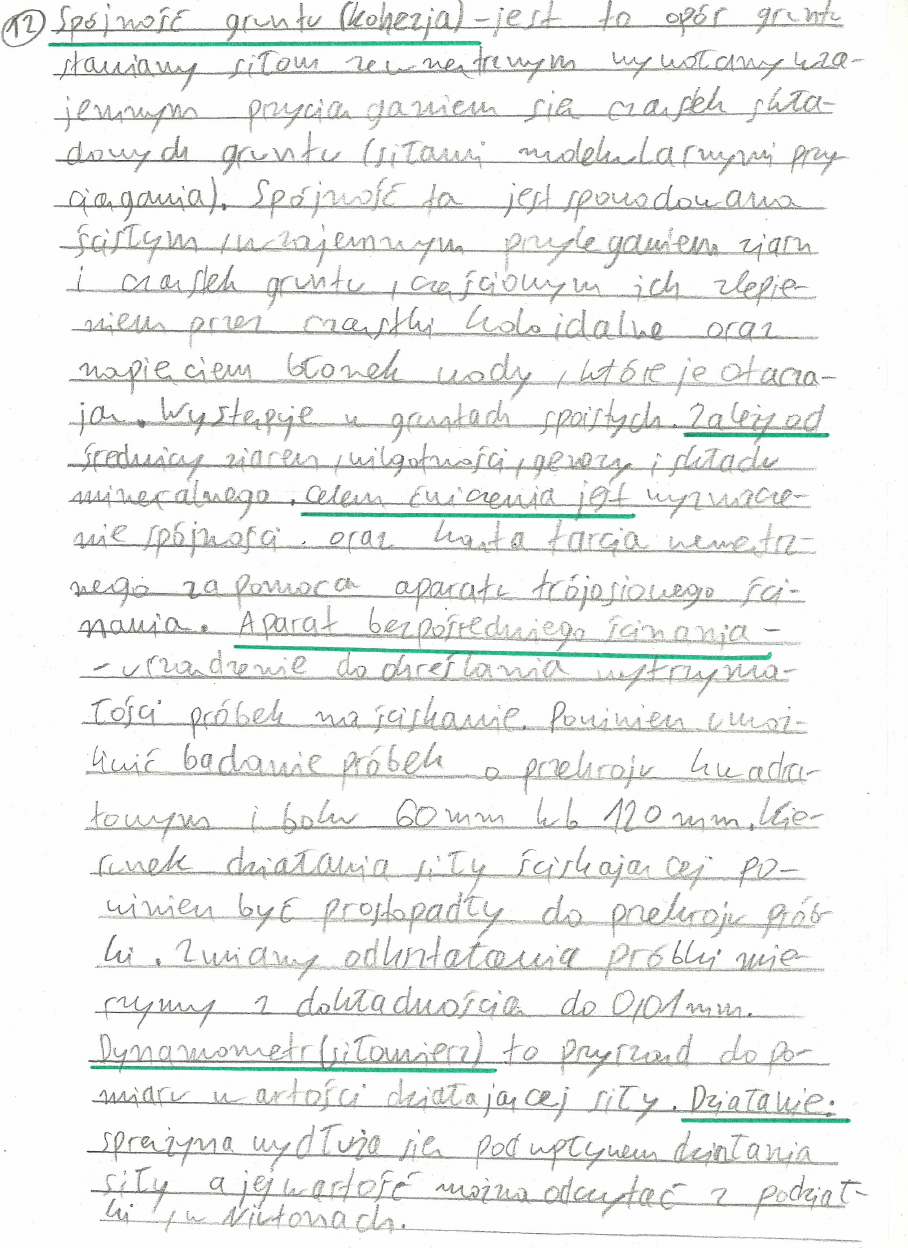 12) Spójność gruntu (kohezja) - jest to opór gruntu
stawiany siłom zewnętrznym wywołany wza-
jemnym przyciąganiem się cząstek skła-
dowych gruntu (siłami molekularnymi przy-
ciągania). Spójność ta jest spowodowana
ścisłym, wzajemnym przyleganiem ziarn
i cząstek gruntu, częściowym ich zlepie-
niem przez cząstki koloidalne oraz
napięciem błonek wody, które je otacza-
ją. Występuje w gruntach spoistych. Zależy od
średnicy ziaren, wilgotności, genezy i składu
mineralnego. Celem ćwiczenia jest wyznacze-
nie spójności. oraz kąta tarcia wewnętrz-
nego za pomocą aparatu trójosiowego ści-
nania. Aparat bezpośredniego ścinania -
- urządzenie do określania wytrzyma-
łości próbek na ściskanie. Powinien umoż-
liwić badanie próbek o przekroju kwadra-
towym i boku 60 mm lub 120 mm. Kie-
runek działania siły ściskającej po-
winien być prostopadły do przekroju prób-
ki. Zmiany odkształcania próbki mie-
rzymy z dokładnością do 0,01 mm.
Dynamometr (siłomierz) to przyrząd do po-
miaru wartości działającej siły. Działanie:
sprężyna wydłuża się pod wpływem działania
siły a jej wartość można odczytać z podział-
ki, w Niutonach.